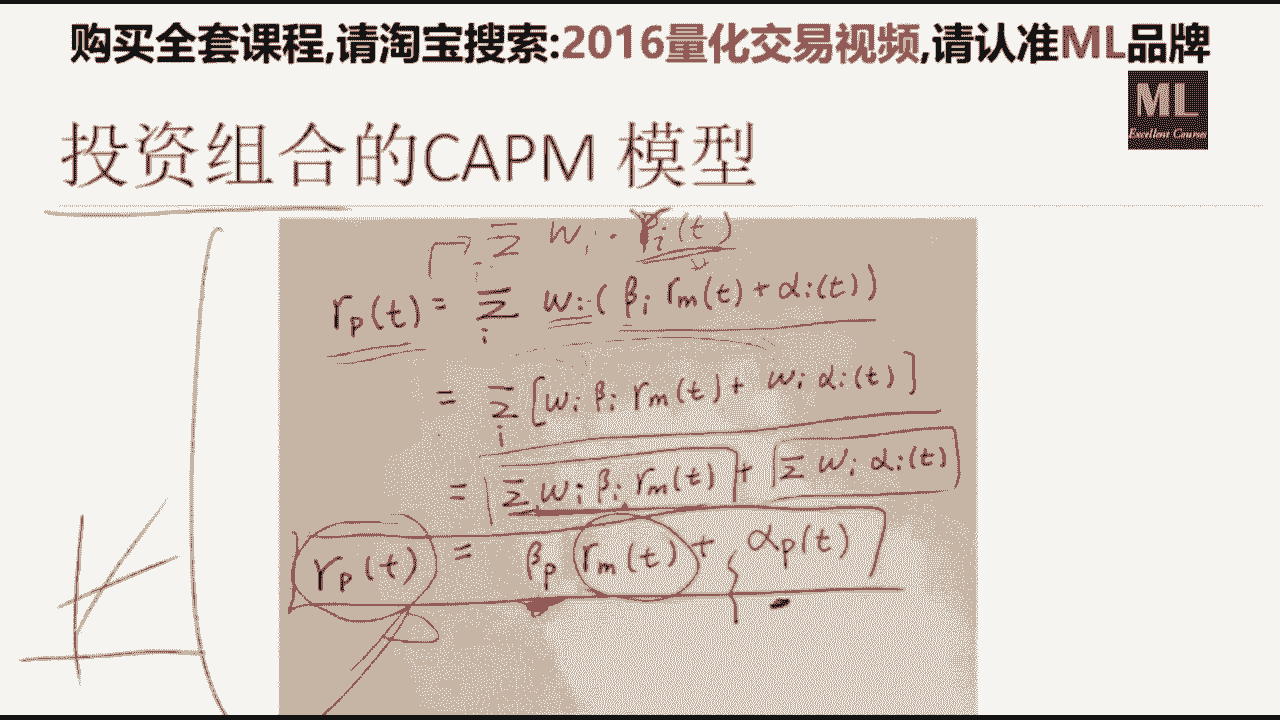 购买全套课程,请淘宝搜索:2016量化交易视频,请认准ML品牌
ML
Excellent Courses
投资组合的CAPM 模型
Σ_i w_i · r_i(t)
r_p(t) = Σ_i w_i (β_i r_m(t) + α_i(t))
= Σ_i [w_i β_i r_m(t) + w_i α_i(t)]
= Σ w_i β_i r_m(t) + Σ w_i α_i(t)
r_p(t) = β_p r_m(t) + α_p(t)